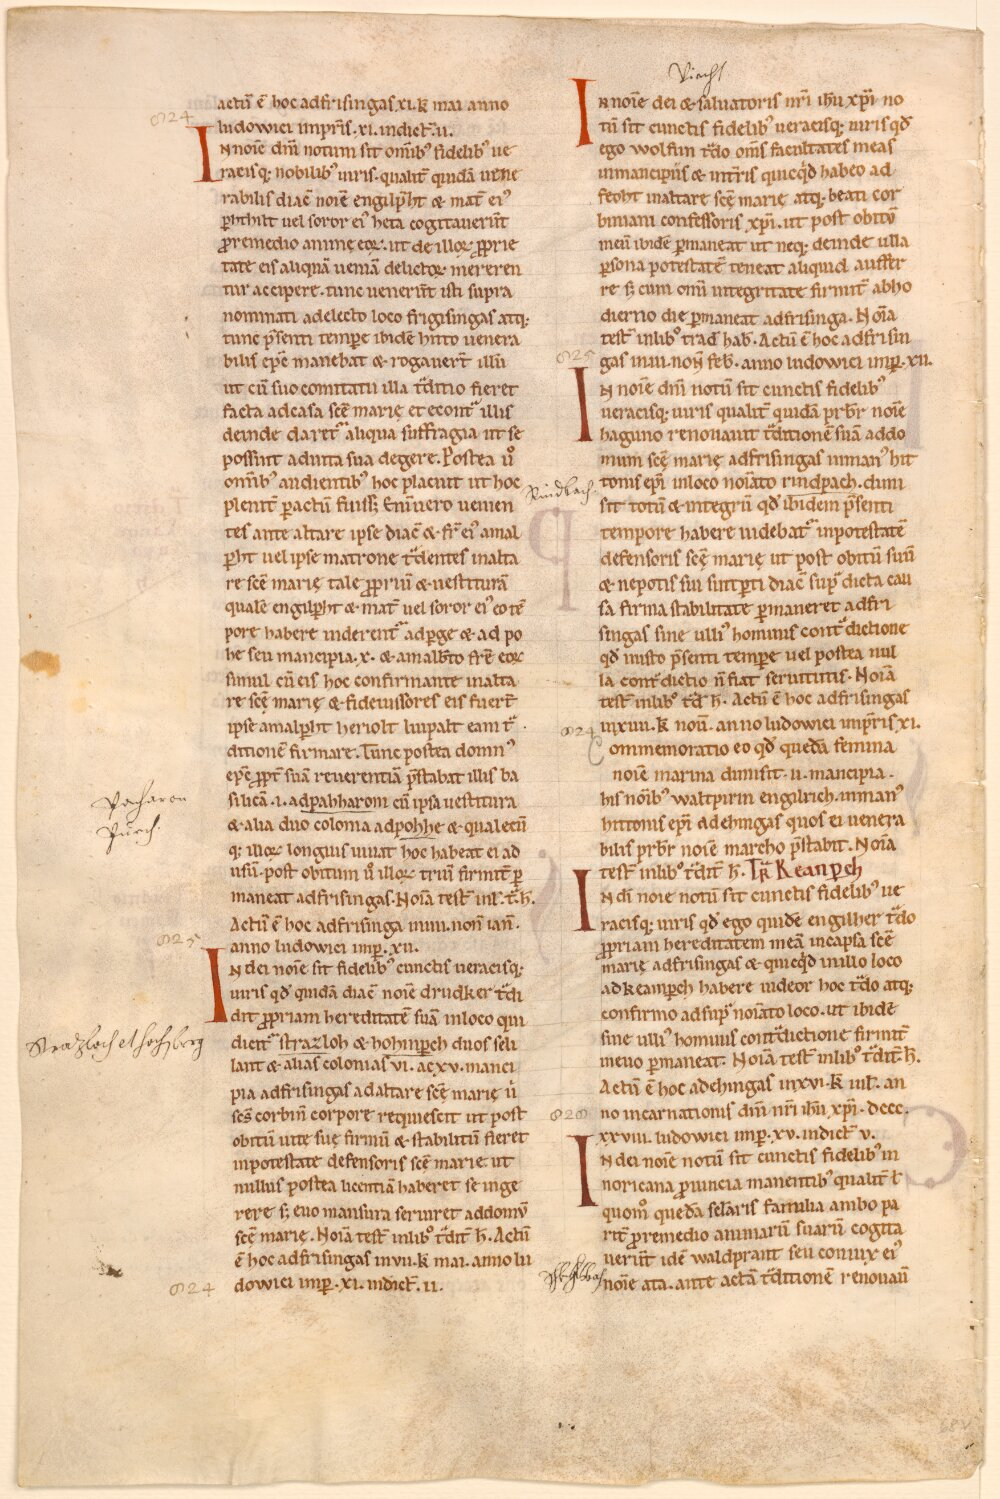 actū ē hoc adfrisingas xi. k̄ mai anno
ludowici impr̄is. xi. indict̄. ii.
In noīe dn̄i notum sit om̄ib⁹ fidelib⁹ ue
racisq; nobilib⁹ uiris. qualit̄ quidā uene
rabilis diac̄ noīe engilp̄ht & mat̄ ei⁹
p̄hthilt uel soror ei⁹ heta cogitauer̄t
ꝓremedio anime eoꝝ. ut de illoꝝ ꝓprie
tate eis aliquā ueniā delictoꝝ mereren
tur accipere. tunc uener̄t isti supra
nominati adelecto loco frigisingas atq;
tunc p̄senti tempe ibidē hitto uenera
bilis ep̄c manebat & rogauer̄t illū
ut cū suo comitatu illa t̄ditio fieret
facta adcasa scē marie et econt̄ illis
deinde daret̄ aliqua suffragia ut se
possint aduita sua degere. Postea ū
om̄ib⁹ audientib⁹ hoc placuit ut hoc
plenit̄ pactū fuiss; Enīuero uenien
tes ante altare ipse diac̄ & fr̄ ei⁹ amal
p̄ht uel ipse matrone t̄dentes inalta
re scē marię tale ꝓpriū & uestiturā
qualē engilp̄ht & mat̄ uel soror ei⁹ eo tē
pore habere uiderent̄ adperge & ad po
he seu mancipia. x. & amalb̄to fr̄e eoꝝ
simul cū eis hoc confirmante inalta
re scē marię & fideiussores eis fuer̄t
ipse amalp̄ht heriolt luipalt eam t̄
ditionē firmare. Tunc postea domn⁹
ep̄c ꝓpt̄ suā reuerentiā p̄stabat illis ba
silicā. i. adpahharom cū ipsa uestitura
& alia duo colonia adpohhe & qualecū
q; illoꝝ longius uiuat hoc habeat ei ad
usū. post obitum ū illoꝝ triū firmit̄ p̄
maneat adfrisingas. Noīa test̄ inl̄. t̄. h̄.
Actū ē hoc adfrisinga iiii. non̄ ian̄.
anno ludowici imp̄. xii.
In dei noīe sit fidelib⁹ cunctis ueracisq;
uiris qd̄ quidā diac̄ noīe drudker t̄di
dit ꝓpriam hereditatē suā inloco qui
dicit̄ strazloh & hohinp̄ch duos seli
lant & alias colonias vi. ac xv. manci
pia adfrisingas adaltare scē marię ū
scs̄ corbin̄ corpore requiescit ut post
obitū uite suę firmū & stabilitū fieret
inpotestate defensoris scē marie. ut
nullus postea licentiā haberet se inge
rere s; euo mansura seruiret addomū
scē marię. Noīa test̄ inlib⁹ t̄dit̄ h̄. Actū
ē hoc adfrisingas invii. k̄ mai. anno lu
dowici imp̄. xi. indict̄. ii.
Viecht
In noīe dei & saluatoris nr̄i ihū xp̄i no
tū sit cunctis fidelib⁹ ueracisq; uiris qd̄
ego wolfun t̄do om̄s facultates meas
inmancipiis & int̄ris quicq̄d habeo ad
feoht inaltare scē marię atq; beati cor
biniani confessoris xp̄i. ut post obitū
meū ibidē p̄maneat ut neq; deinde ulla
p̄sona potestatē teneat aliquid auffer
re s; cum om̄i integritate firmit̄ abho
dierno die p̄maneat adfrisinga. Noīa
test̄ inlib⁹ trad̄ hab̄. Actū ē hoc adfrisin
gas iniii. non̄ feb̄. anno ludowici imp̄. xii.
In noīe dn̄i notū sit cunctis fidelib⁹
ueracisq; uiris qualit̄ quidā pr̄br noīe
haguno renouauit t̄ditionē suā addo
mum scē marię adfrisingas inman⁹ hit
tonis ep̄i inloco noīato rindpach. dimi
sit totū & integrū qd̄ ibidem p̄senti
tempore habere uidebat̄ inpotestatē
defensoris scē marię ut post obitū suū
& nepotis sui suntp̄ti diac̄ sup̄ dicta cau
sa firma stabilitate p̄maneret adfri
singas sine ulli⁹ hominis cont̄dictione
qd̄ nisto p̄senti tempe uel postea nul
la cont̄dictio n̄ fiat seruitutis. Noīa
test̄ inlib⁹ t̄d̄ h̄. Actū ē hoc adfrisingas
inxiiii. k̄ nou̅. anno ludowici impr̄is xi.
Commemoratio eo qd̄ quedā femina
noīe marina dimisit. ii. mancipia.
his noīb⁹ waltpirin engilrich. inman⁹
hittonis ep̄i adehingas quos ei uenera
bilis pr̄br noīe marcho p̄stabit. Noīa
test̄ inlib⁹ t̄dit̄ h̄. Tr̄ Keanp̄ch
In dī noīe notū sit cunctis fidelib⁹ ue
racisq; uiris qd̄ ego quidē engilher t̄do
ꝓpriam hereditatem meā incapsa scē
marię adfrisingas & quicq̄d inillo loco
adkeanp̄ch habere uideor hoc t̄do atq;
confirmo adsup̄ noīato loco. ut ibidē
sine ulli⁹ hominis cont̄dictione firmit̄
inęuo p̄maneat. Noīa test̄ inlib⁹ t̄dit̄. h̄.
Actū ē hoc adehingas inxvi. k̄ iul̄. an
no incarnationis dn̄i nr̄i ihū xp̄i. dccc.
xxviii. ludowici imp̄. xv. indict̄ v.
In dei noīe notū sit cunctis fidelib⁹ in
noricana ꝓuincia manentib⁹ qualit̄ t̄
quom̄ quedā selaris familia ambo pa
rit̄ ꝓremedio animarū suarū cogita
uer̄t idē waldprant seu coniux ei⁹
noīe ata. ante actā t̄ditionē renouaū
824
825
Pacharon
Puech.
Strazloch et hochberg
824
825
Rindbach.
824
828